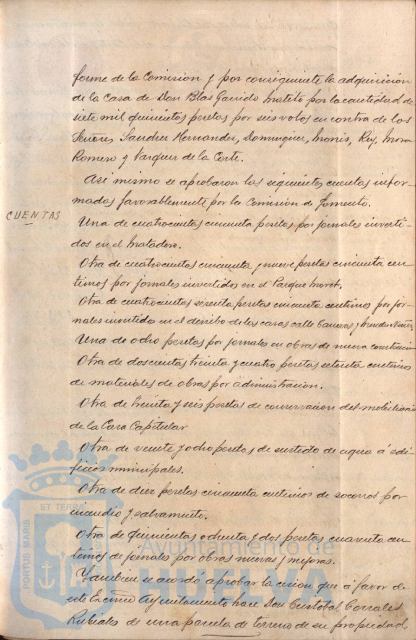 forme de la Comision y por consiguiente la adquisicion
de la Casa de Don Blas Garrido por la cantidad de
siete mil quinientas pesetas por seis votos en contra de los
Señores Sanchez Hernandez, Dominguez, Rey, Mora
Romero y Vazquez de la Corte.
Asi mismo se aprobaron las siguientes cuentas infor-
madas favorablemente por la Comision de Fomento.
CUENTAS
Una de cuatrocientas cincuenta pesetas por jornales inverti-
dos en el Matadero.
Otra de cuatrocientas cincuenta y nueve pesetas cincuenta cen-
timos por jornales invertidos en el Parque Moret.
Otra de cuatrocientas sesenta pesetas cincuenta centimos por jor-
nales invertidos en el derribo de las casas calle
Una de ocho pesetas por jornales en obras de nueva construccion
Otra de doscientas treinta y cuatro pesetas setenta centimos
de materiales de obras por administracion.
Otra de treinta y seis pesetas de conservacion del mobiliario
de la Casa Capitular
Otra de veinte y ocho pesetas de surtido de agua á edi-
ficios municipales.
Otra de diez pesetas cincuenta centimos de socorros por
incendio y salvamento.
Otra de quinientas ochenta y dos pesetas cuarenta cen-
timos de jornales por obras nuevas y mejoras.
Tambien se acordó aprobar la cesion que á favor de
este Excmo Ayuntamiento hace Don Cristobal Corrales
Rubiales de una parcela de terreno de su propiedad
PORTUS MARIS ET TERRE
Ayuntamiento de
HUELVA